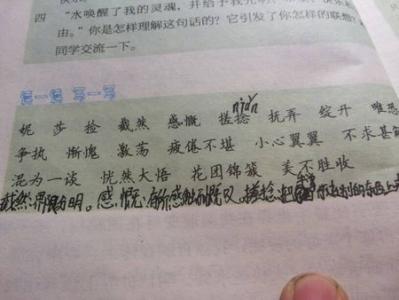 四 "水唤醒了我的灵魂,并给予我光明、
由。"你是怎样理解这句话的?它引发了你怎样的联想?
同学交流一下。
读一读 写一写
妮 莎 捡 截然 感慨 搓捻 抚弄 绽开 唯恐
争执 惭愧 激荡 疲倦不堪 小心翼翼 不求甚
混为一谈 恍然大悟 花团锦簇 美不胜收
截然:界限分明。感慨:有所感触而慨叹。搓捻:把